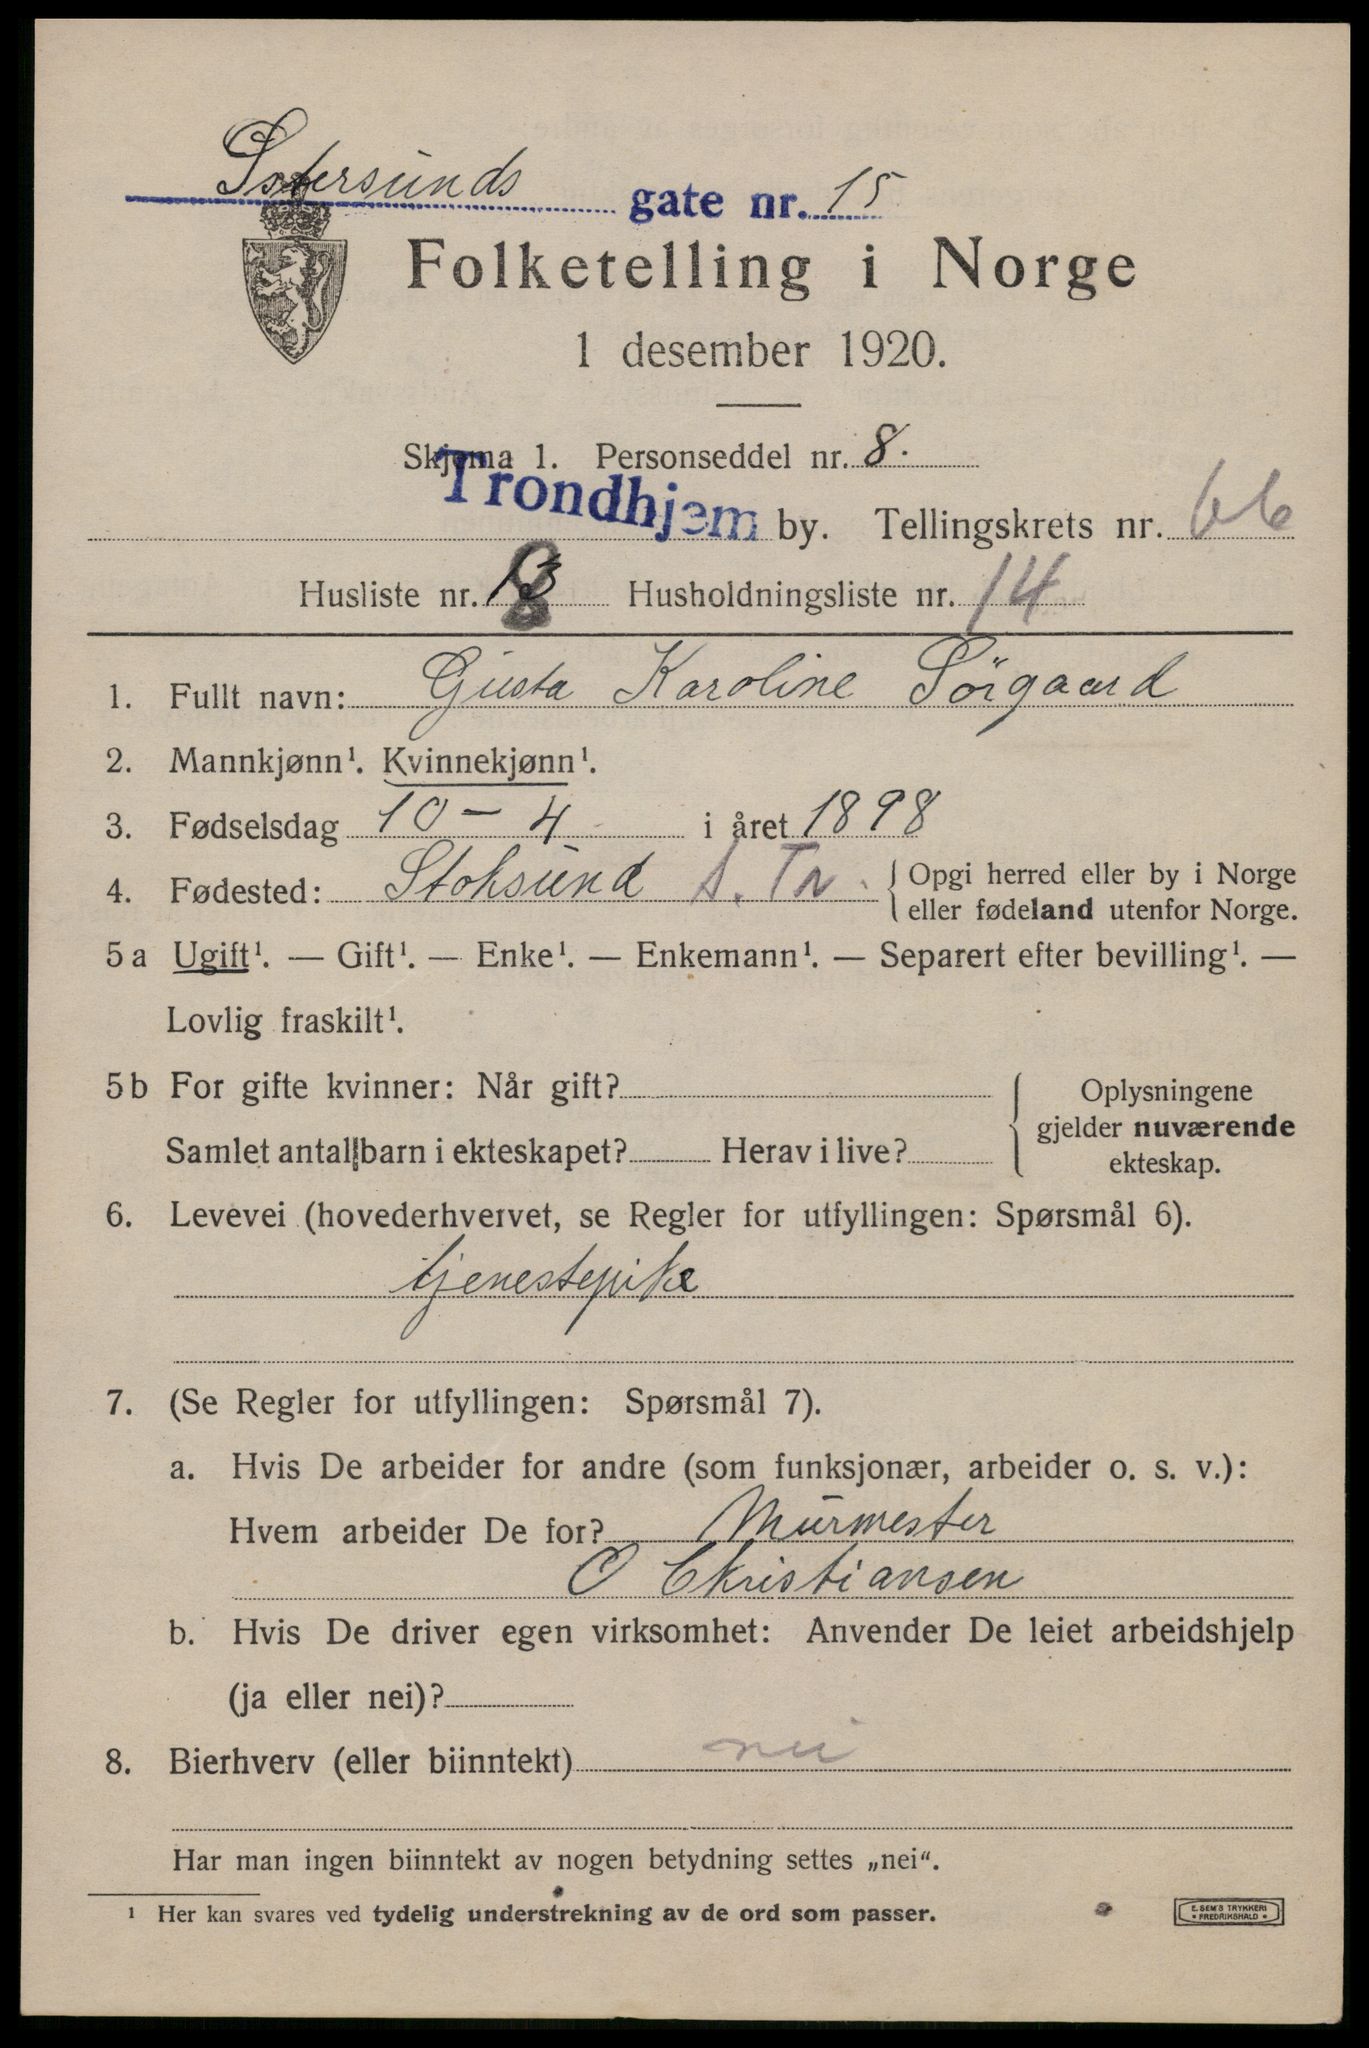 Østersunds gate nr. 15
Folketelling i Norge
1 desember 1920.
Skjema 1. Personseddel nr. 8.
Trondhjem by. Tellingskrets nr. 66
Husliste nr. 8 Husholdningsliste nr. 14
1. Fullt navn: Gusta Karoline Sörgaard
2. Mannkjønn¹. Kvinnekjønn¹.
3. Fødselsdag 10 - 4 i året 1898
4. Fødested: Stoksund S. Tr. { Opgi herred eller by i Norge
eller fødeland utenfor Norge.
5a Ugift¹. — Gift¹. — Enke¹. — Enkemann¹. — Separert efter bevilling¹. —
Lovlig fraskilt¹.
5b For gifte kvinner: Når gift?
Samlet antall barn i ekteskapet? Herav i live?
{ Oplysningene
gjelder nuværende
ekteskap.
6. Levevei (hovederhvervet, se Regler for utfyllingen: Spørsmål 6).
tjenestepike
7. (Se Regler for utfyllingen: Spørsmål 7).
a. Hvis De arbeider for andre (som funksjonær, arbeider o. s. v.):
Hvem arbeider De for? Murmester
O Christiansen
b. Hvis De driver egen virksomhet: Anvender De leiet arbeidshjelp
(ja eller nei)?
8. Bierhverv (eller biinntekt) nei
Har man ingen biinntekt av nogen betydning settes „nei“.
¹ Her kan svares ved tydelig understrekning av de ord som passer.
E. SEM'S TRYKKERI
• FREDRIKSHALD •